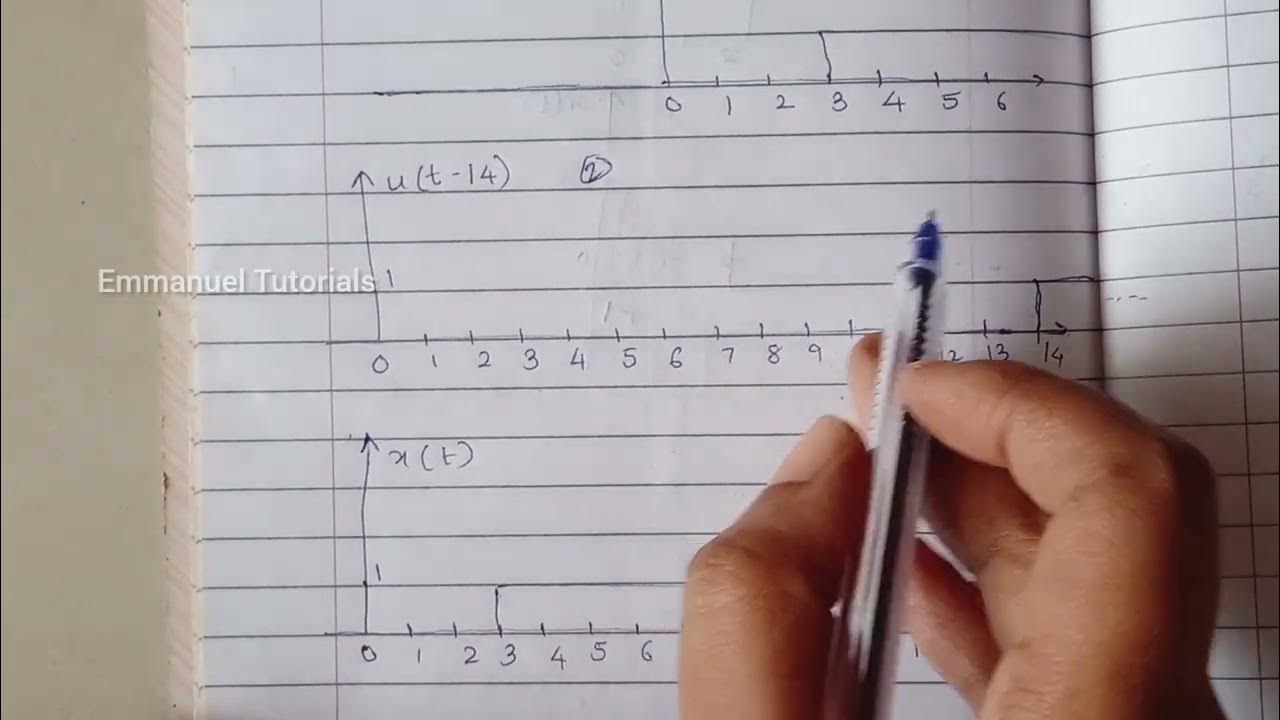 0 1 2 3 4 5 6
u(t-14) ②
1
Emmanuel Tutorials
0 1 2 3 4 5 6 7 8 9 12 13 14
x(t)
1
0 1 2 3 4 5 6